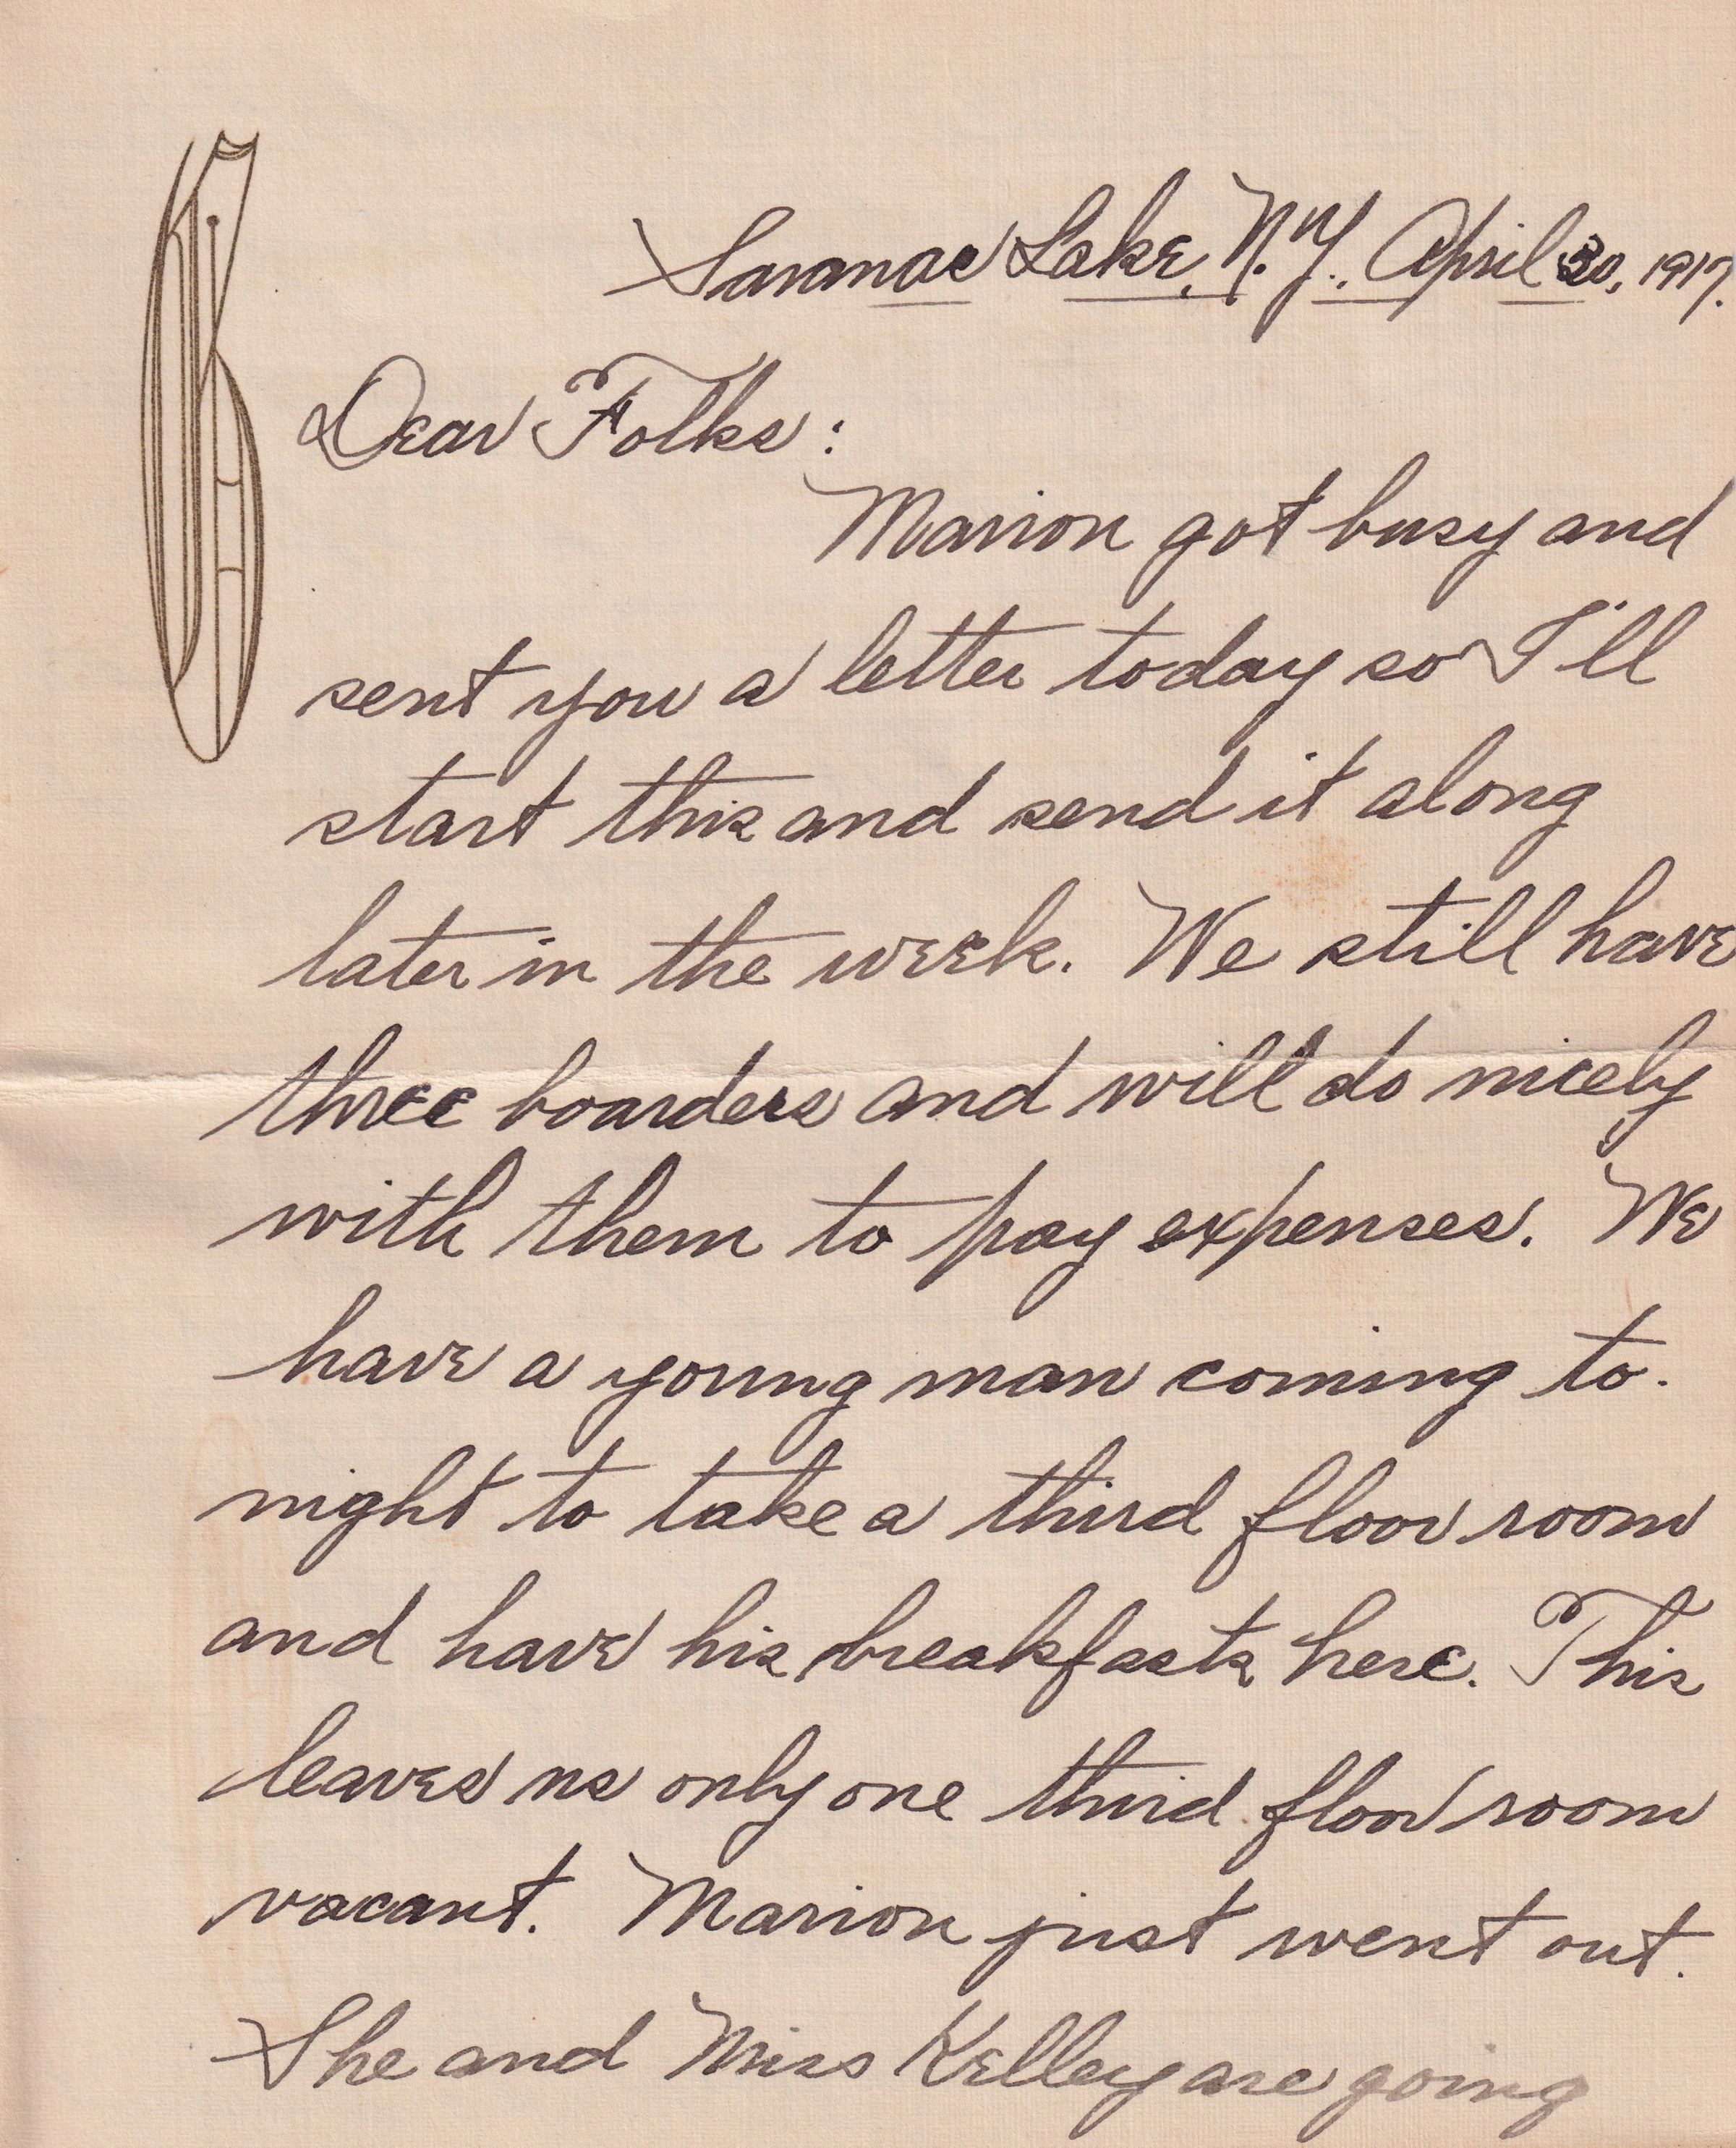 Saranac Lake, N.Y., April 30, 1917.
Dear Folks:
Marion got busy and
sent you a letter today so I'll
start this and send it along
later in the week. We still have
three boarders and will do nicely
with them to pay expenses. We
have a young man coming to-
night to take a third floor room
and have his breakfasts here. This
leaves us only one third floor room
vacant. Marion just went out.
She and Miss Kelley are going